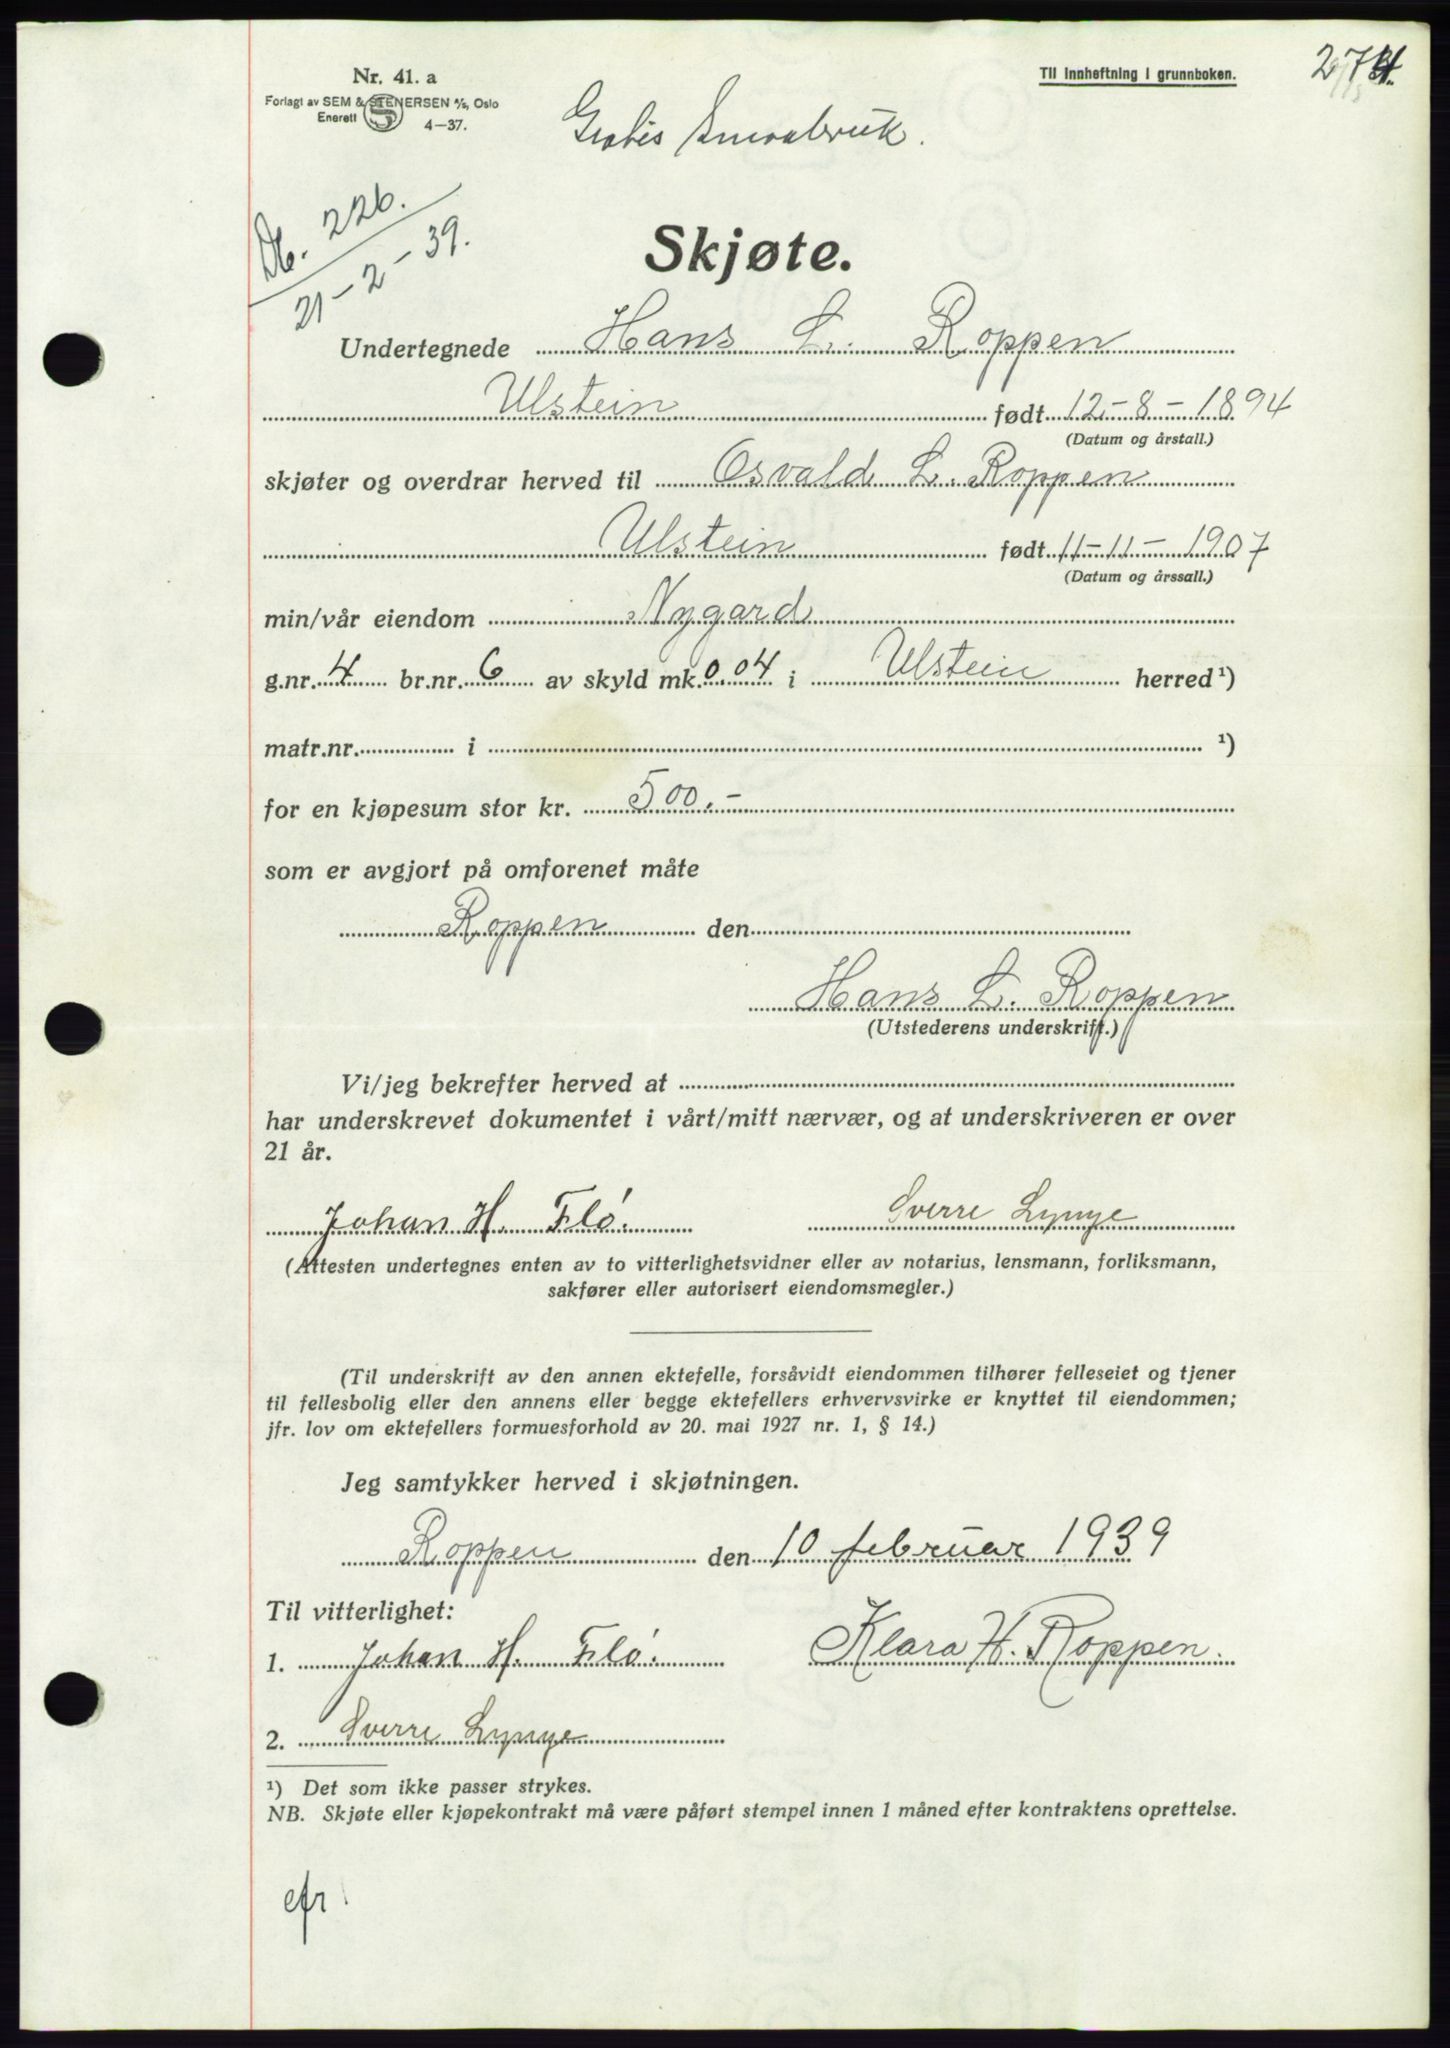 Nr. 41. a
Forlagt av SEM & STENERSEN A/S, Oslo
Enerett 4—37.
Til innheftning i grunnboken.
Gratis Smaabruk.
Db. 226.
21-2-39.
Skjøte.
Undertegnede Hans L. Roppen
Ulstein født 12-8-1894
(Datum og årstall.)
skjøter og overdrar herved til Osvald L. Roppen
Ulstein født 11-11-1907
(Datum og årssall.)
min/vår eiendom Nygard
g.nr. 4 br.nr. 6 av skyld mk. 0.04 i Ulstein herred¹)
matr.nr. i ¹)
for en kjøpesum stor kr. 500.-
som er avgjort på omforenet måte
Roppen den
Hans L. Roppen
(Utstederens underskrift.)
Vi/jeg bekrefter herved at
har underskrevet dokumentet i vårt/mitt nærvær, og at underskriveren er over
21 år.
Johan H. Flø. Sverre Lynge
(Attesten undertegnes enten av to vitterlighetsvidner eller av notarius, lensmann, forliksmann,
sakfører eller autorisert eiendomsmegler.)
(Til underskrift av den annen ektefelle, forsåvidt eiendommen tilhører felleseiet og tjener
til fellesbolig eller den annens eller begge ektefellers erhvervsvirke er knyttet til eiendommen;
jfr. lov om ektefellers formuesforhold av 20. mai 1927 nr. 1, § 14.)
Jeg samtykker herved i skjøtningen.
Roppen den 10 februar 1939
Til vitterlighet:
1. Johan H. Flø. Klara H. Roppen.
2. Sverre Lynge
¹) Det som ikke passer strykes.
NB. Skjøte eller kjøpekontrakt må være påført stempel innen 1 måned efter kontraktens oprettelse.
efr.